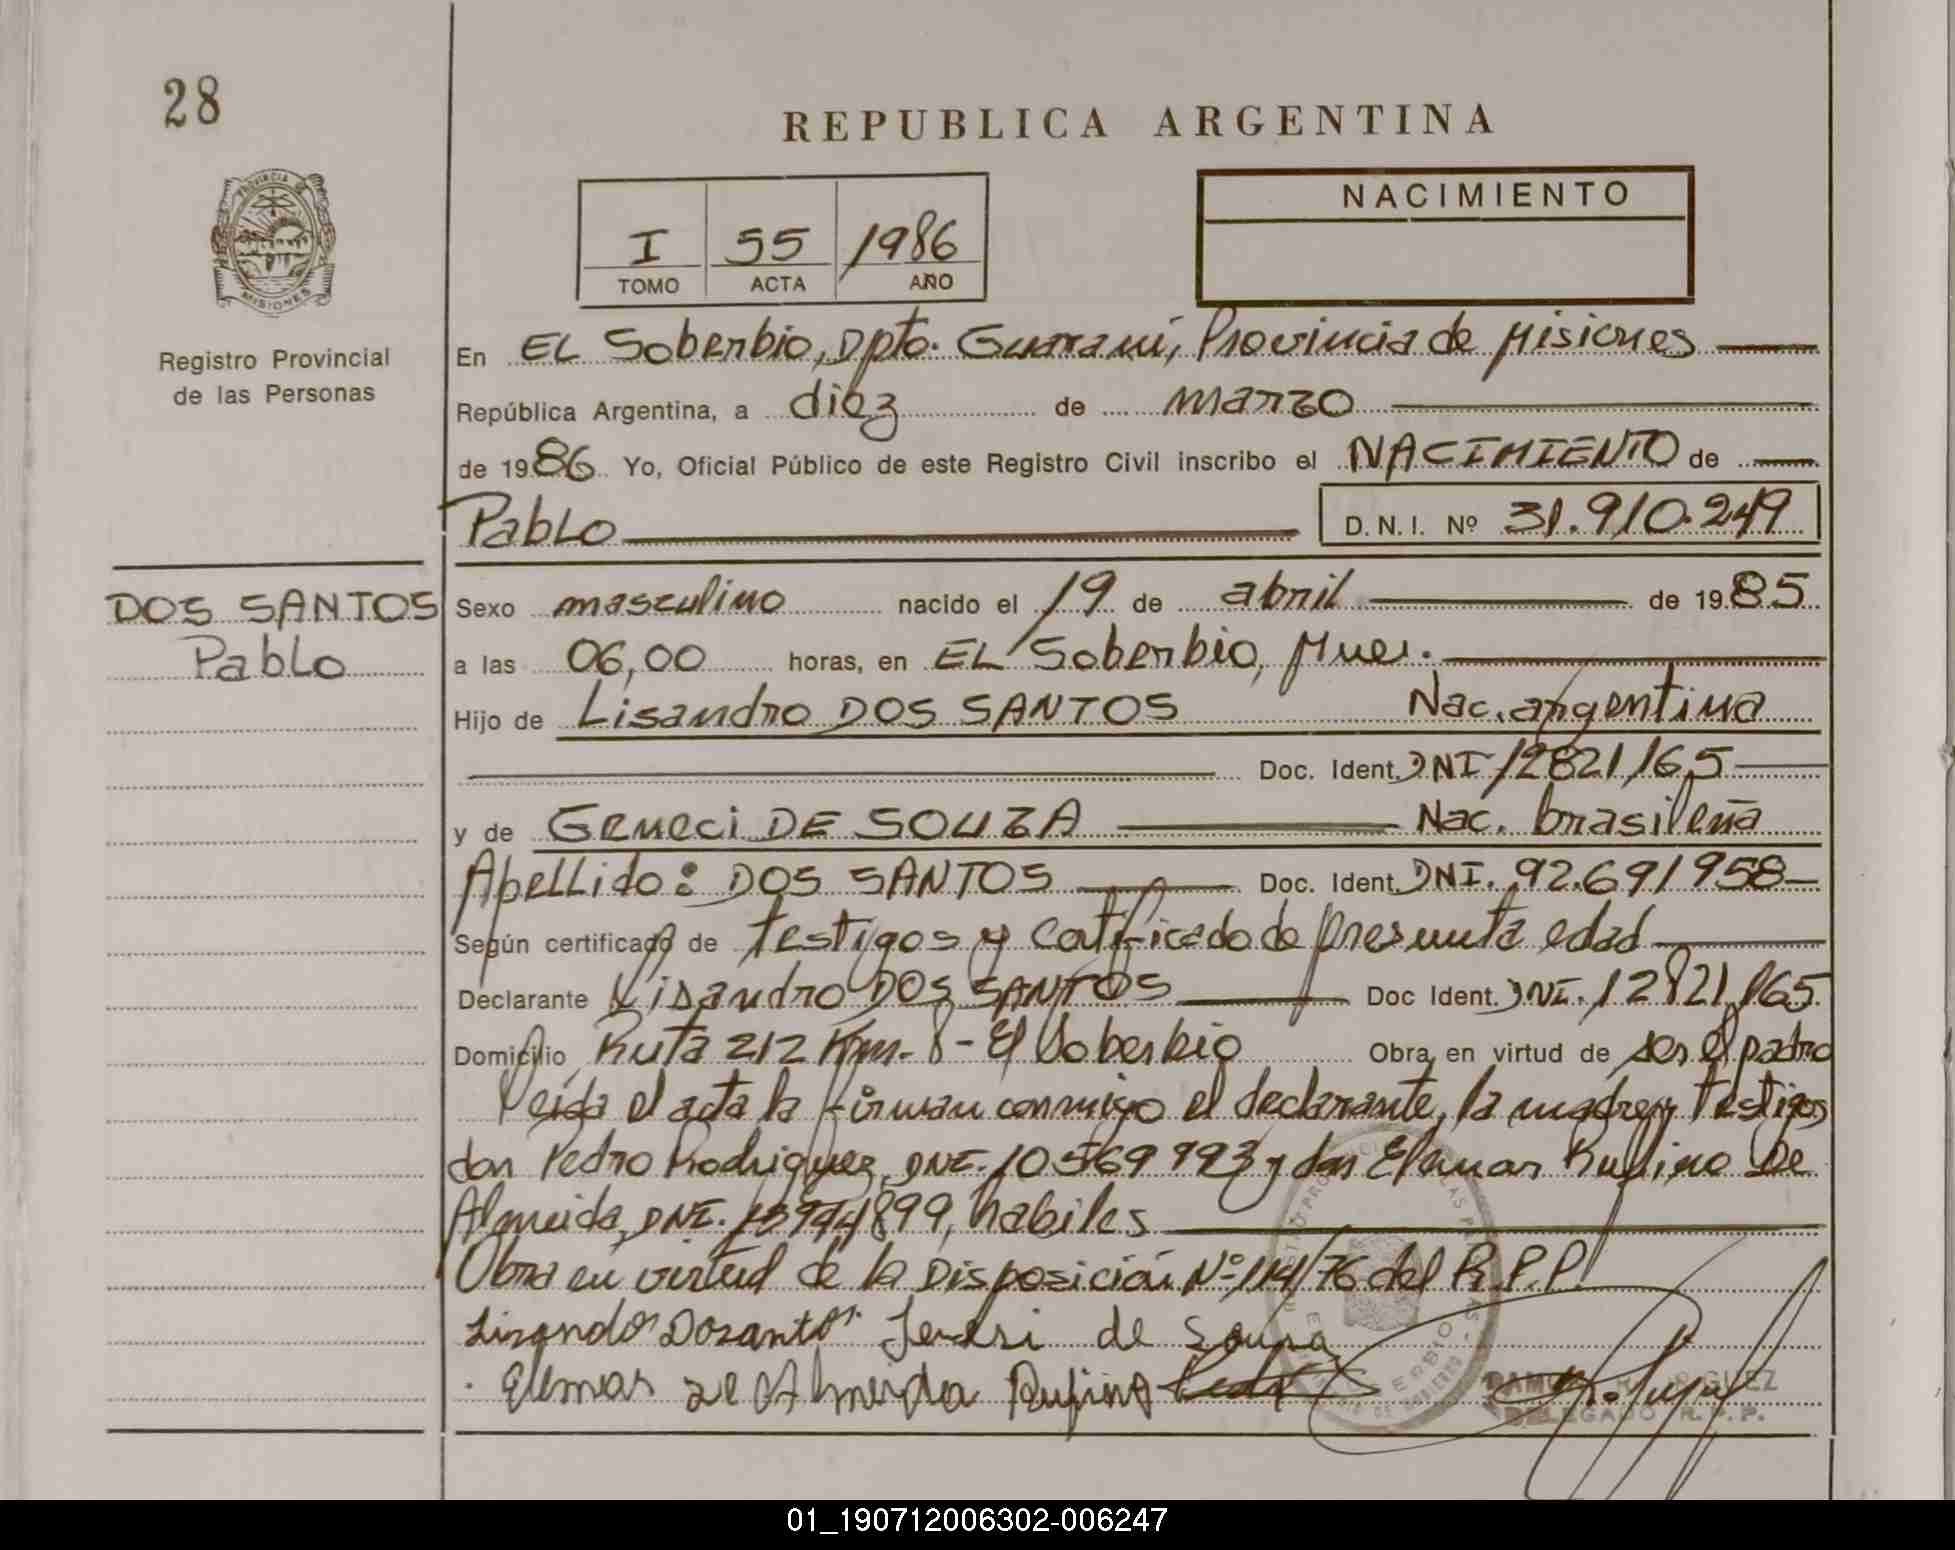 28
REPUBLICA ARGENTINA
PROVINCIA DE
MISIONES
Registro Provincial
de las Personas
NACIMIENTO
I 55 1986
TOMO ACTA AÑO
En EL Soberbio, Dpto. Guarani, Provincia de Misiones
República Argentina, a diez de marzo
de 1986 Yo, Oficial Público de este Registro Civil inscribo el NACIMIENTO de
Pablo D.N.I. Nº 31.910.249
DOS SANTOS
Pablo
Sexo masculino nacido el 19 de abril de 1985
a las 06,00 horas, en EL Soberbio, Mnes.
Hijo de Lisandro DOS SANTOS Nac. argentina
Doc. Ident. DNI 12821165
y de GENECI DE SOUZA Nac. brasileña
Apellido: DOS SANTOS Doc. Ident. DNI. 92.691958
Según certificado de testigos y certificado de presunta edad
Declarante Lisandro DOS SANTOS Doc Ident. DNI. 12821165
Domicilio Ruta 212 Km. 8 - El Soberbio Obra en virtud de ser el padre
Leida el acta la firman conmigo el declarante, la madre y testigos
don Pedro Rodriguez, DNI. 10569993 y don Elemar Rufino De
Almeida, DNI. 899, habiles
Obra en virtud de la Disposición Nº 114/76 del R.P.P.
Lizando Dozanto de Souza
Elemar de Almeida Rufino
DELEGADO R.P.P.
01_190712006302-006247